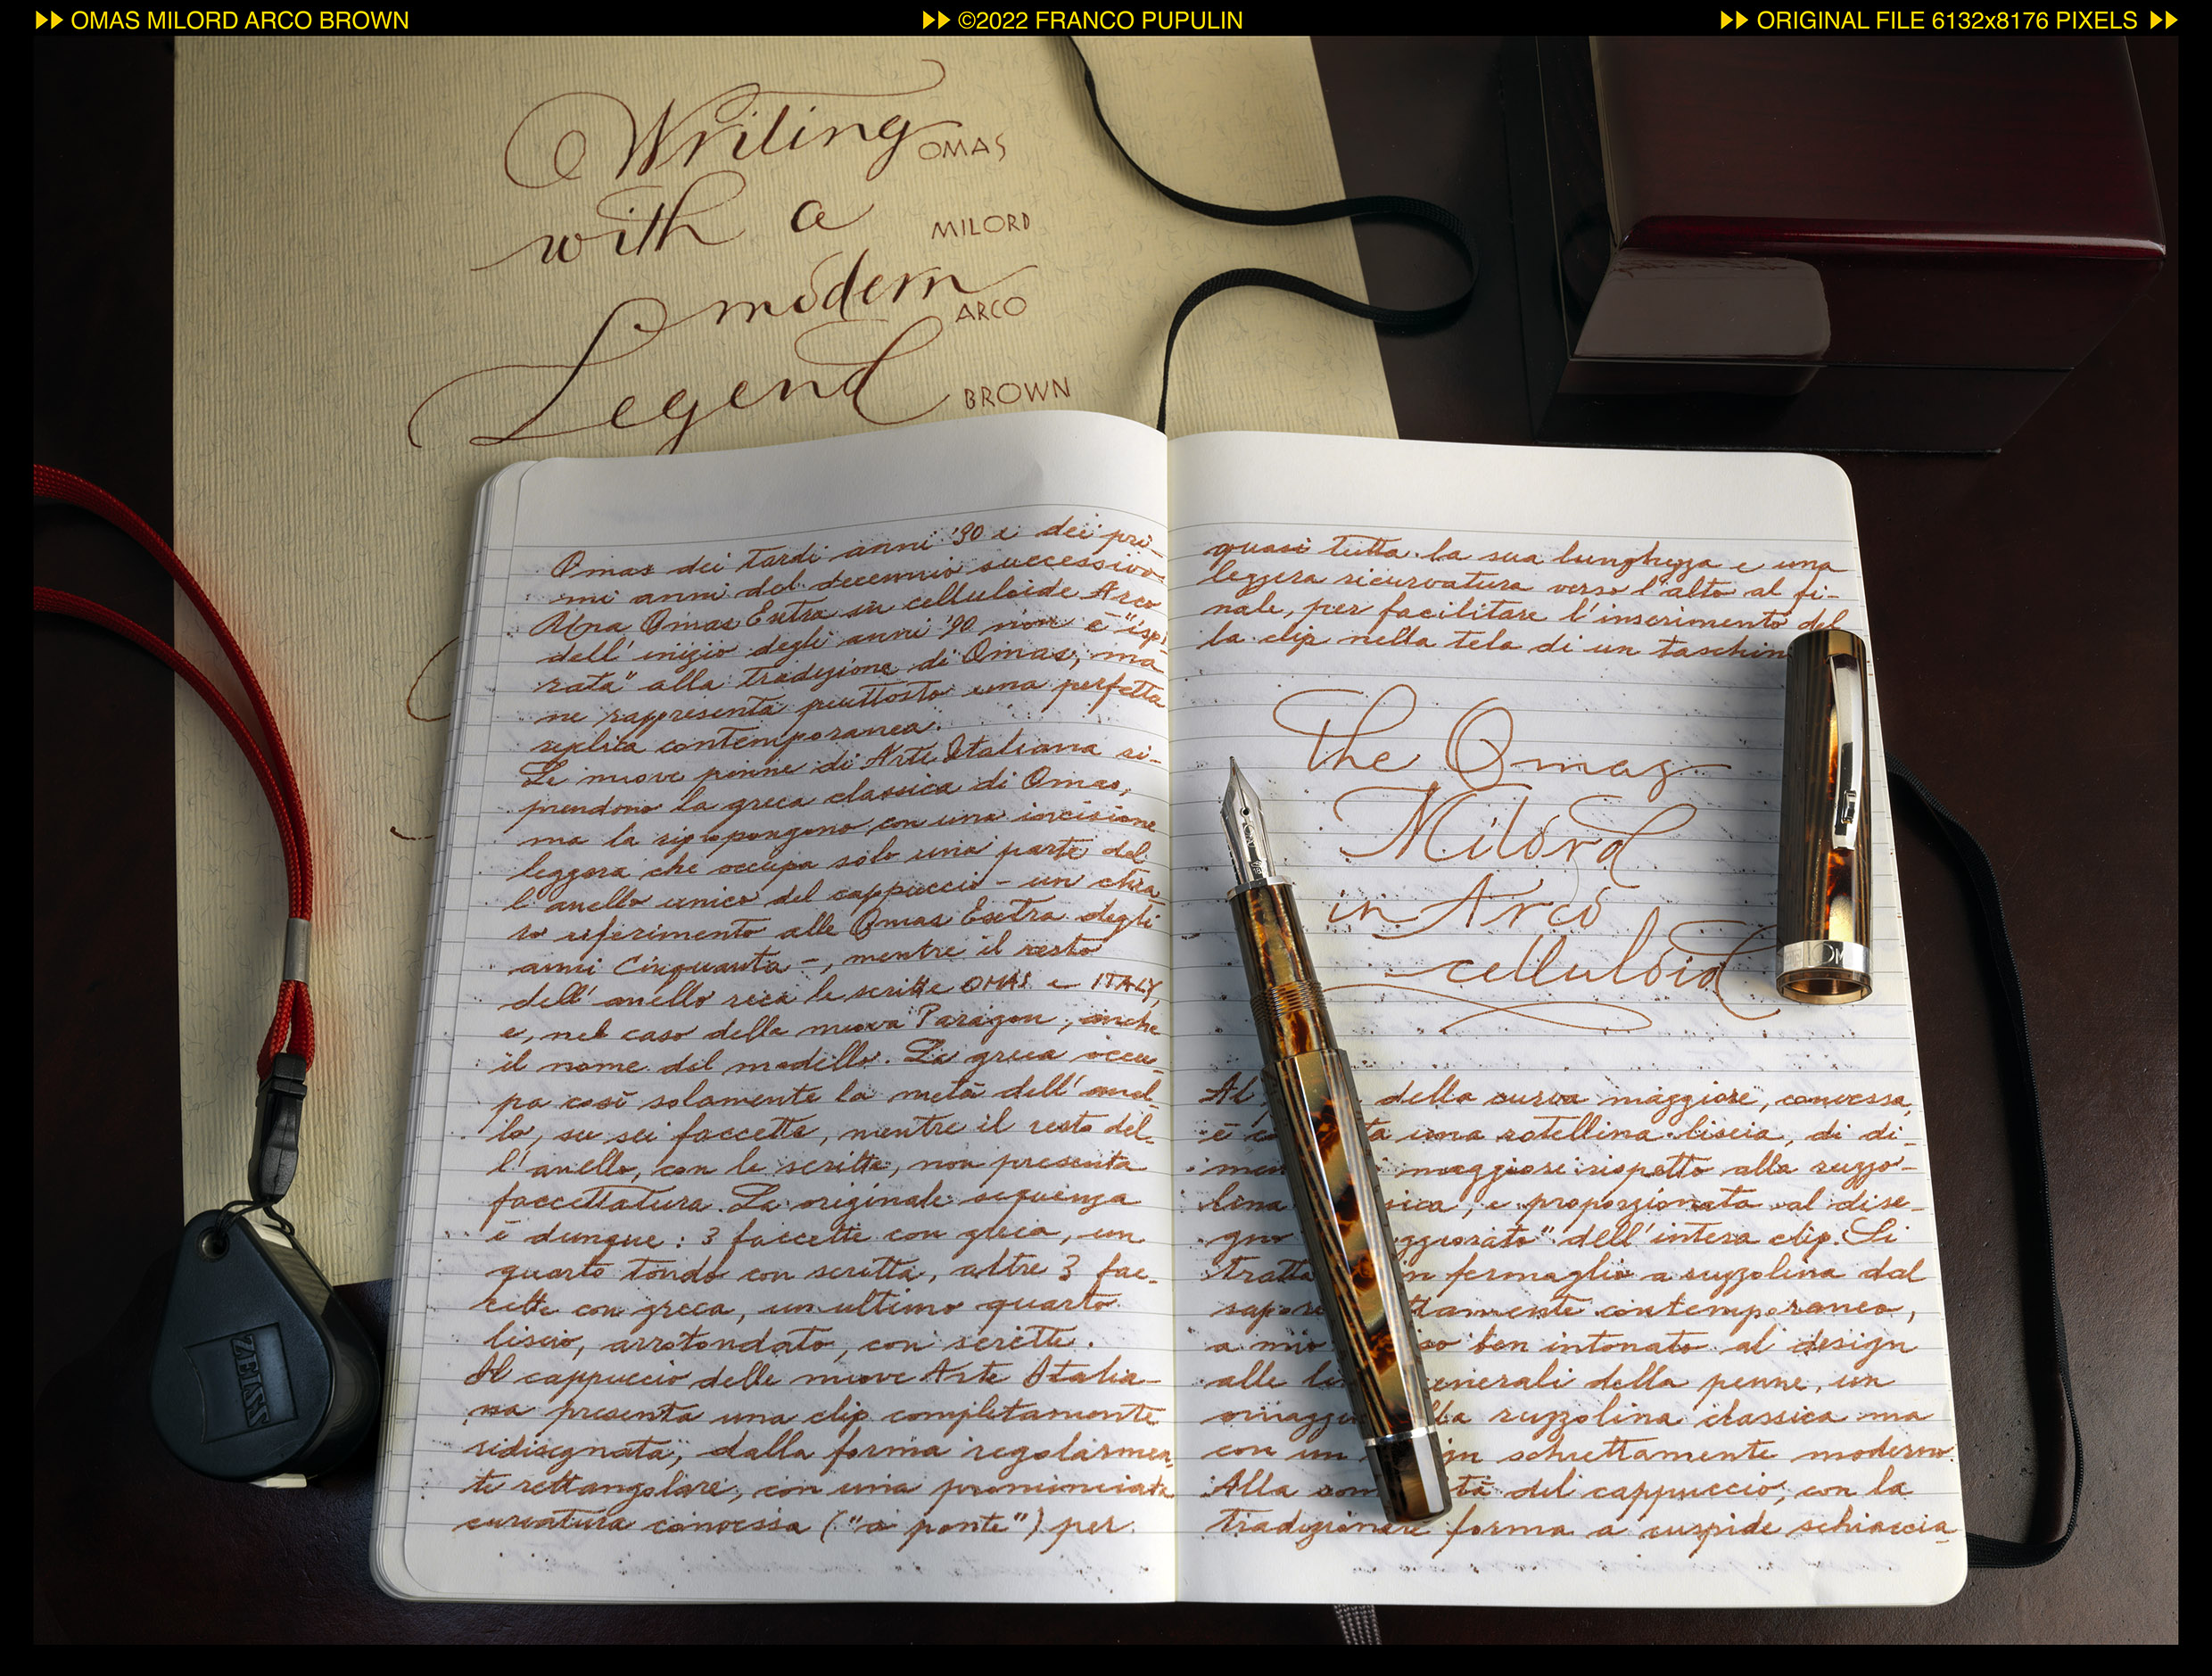 OMAS MILORD ARCO BROWN
©2022 FRANCO PUPULIN
ORIGINAL FILE 6132x8176 PIXELS
Writing
OMAS
with a
MILORD
modern
ARCO
Legend
BROWN
Omas dei tardi anni '30 e dei pri-
mi anni del decennio successivo.
Una Omas Extra in celluloide Arco
dell'inizio degli anni '90 non è "ispi
rata" alla tradizione di Omas, ma
ne rappresenta piuttosto una perfetta
replica contemporanea.
Le nuove penne di Arte Italiana ri-
prendono la greca classica di Omas,
ma la ripropongono con una incisione
leggera che occupa solo una parte del
l'anello unico del cappuccio - un chia
ro riferimento alle Omas Extra degli
anni Cinquanta -, mentre il resto
dell'anello reca le scritte OMAS e ITALY,
e, nel caso della nuova Paragon, anche
il nome del modello. La greca occu-
pa così solamente la metà dell'anel-
lo, su sei faccette, mentre il resto del-
l'anello, con le scritte, non presenta
faccettatura. La originale sequenza
è dunque: 3 faccette con greca, un
quarto tondo con scritta, altre 3 fac-
cette con greca, un ultimo quarto
liscio, arrotondato, con scritte.
Il cappuccio delle nuove Arte Italia-
na presenta una clip completamente
ridisegnata, dalla forma regolarmen
te rettangolare, con una pronunciata
curvatura convessa ("a ponte") per
quasi tutta la sua lunghezza e una
leggera ricurvatura verso l'alto al fi-
nale, per facilitare l'inserimento del
la clip nella tela di un taschin
The Omas
Milord
in Arco
celluloid
Al della curva maggiore, convessa,
è ta una rotellina liscia, di di-
men maggiore rispetto alla ruzzo-
lina sica, e proporzionata al dise-
gno ggiorato" dell'intera clip. Si
tratta in fermaglio a ruzzolina dal
sapore ttamente contemporaneo,
a mio so ben intonato al design
alle li enerali della penna, un
omaggio lla ruzzolina classica ma
con un gn schiettamente moderno.
Alla som tà del cappuccio, con la
tradizionale forma a cuspide schiaccia
OM
ZEISS